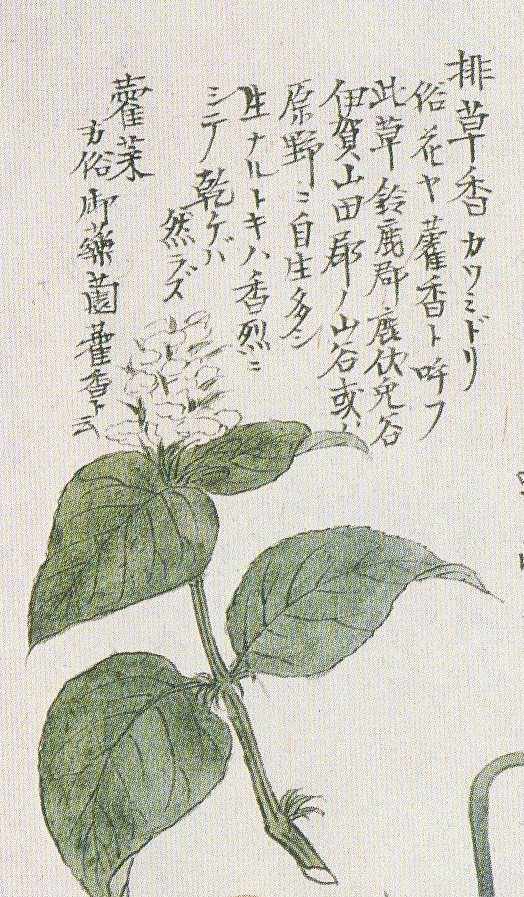 排草香 カワミドリ
俗花ヤ藿香ト呼フ
此草鈴鹿郡鹿伏兎谷
伊賀山田郡ノ山谷或ハ
原野ニ自生多シ
生ナルトキハ香烈ニ
シテ乾ケバ
然ラズ
藿
方俗御藥薗藿香ト云